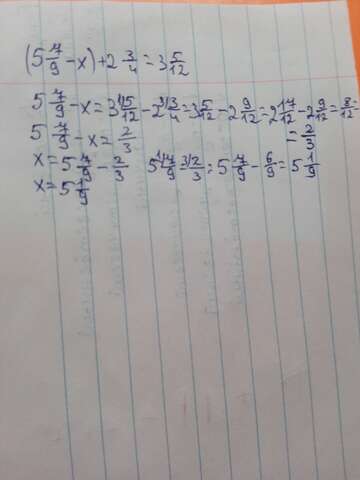 (5 7/9 - x) + 2 3/4 = 3 5/12
5 7/9 - x = 3 5/12 - 2 3/4 = 3 5/12 - 2 9/12 = 2 17/12 - 2 9/12 = 8/12 =
5 7/9 - x = 2/3 = 2/3
x = 5 7/9 - 2/3 5 7/9 - 2/3 = 5 7/9 - 6/9 = 5 1/9
x = 5 1/9